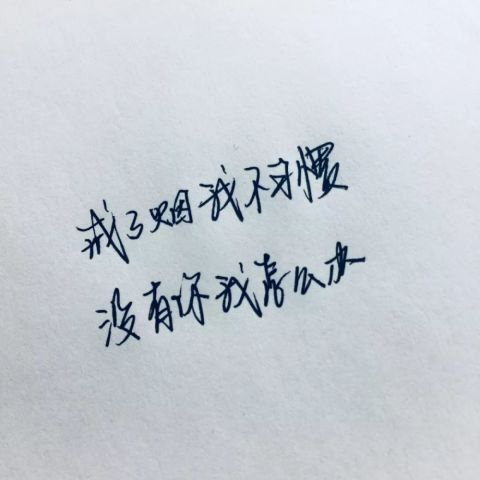 戒了烟我不习惯
没有你我怎么办